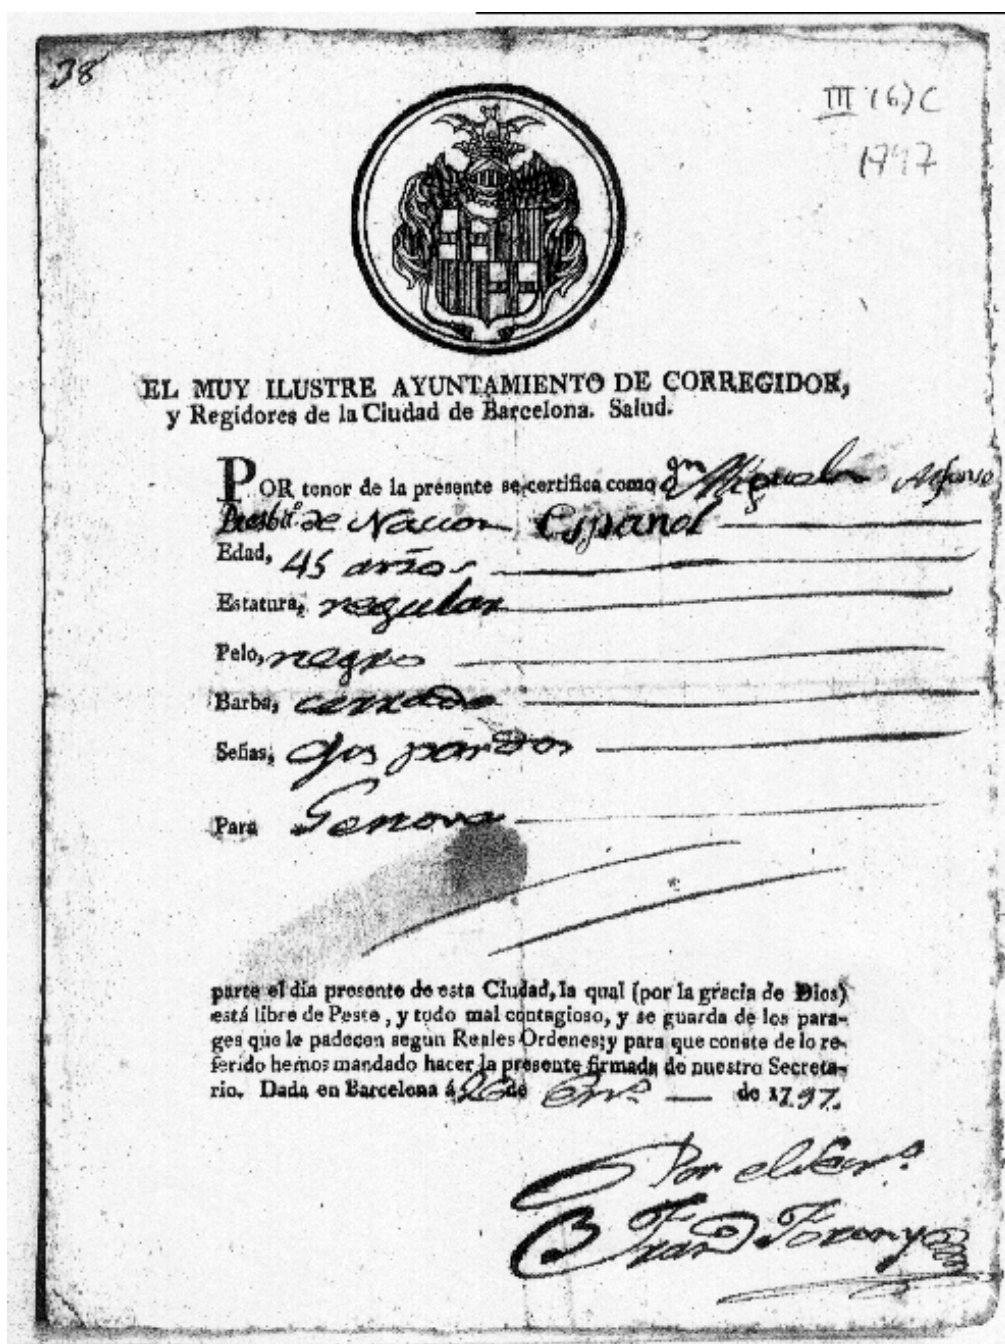 38
III (6) C
1797
EL MUY ILUSTRE AYUNTAMIENTO DE CORREGIDOR,
y Regidores de la Ciudad de Barcelona. Salud.
POR tenor de la presente se certifica como dn Miguel Alfonso
Presbit.º de Nacion Español
Edad, 45 años
Estatura, regular
Pelo, negro
Barba, cerrada
Señas, ojos pardos
Para Genova
parte el dia presente de esta Ciudad, la qual (por la gracia de Dios)
está libre de Peste, y todo mal contagioso, y se guarda de los para-
ges que le padecen segun Reales Ordenes; y para que conste de lo re-
ferido hemos mandado hacer la presente firmada de nuestro Secreta-
rio. Dada en Barcelona á 26 de En.º de 1797.
Por el Secr.º